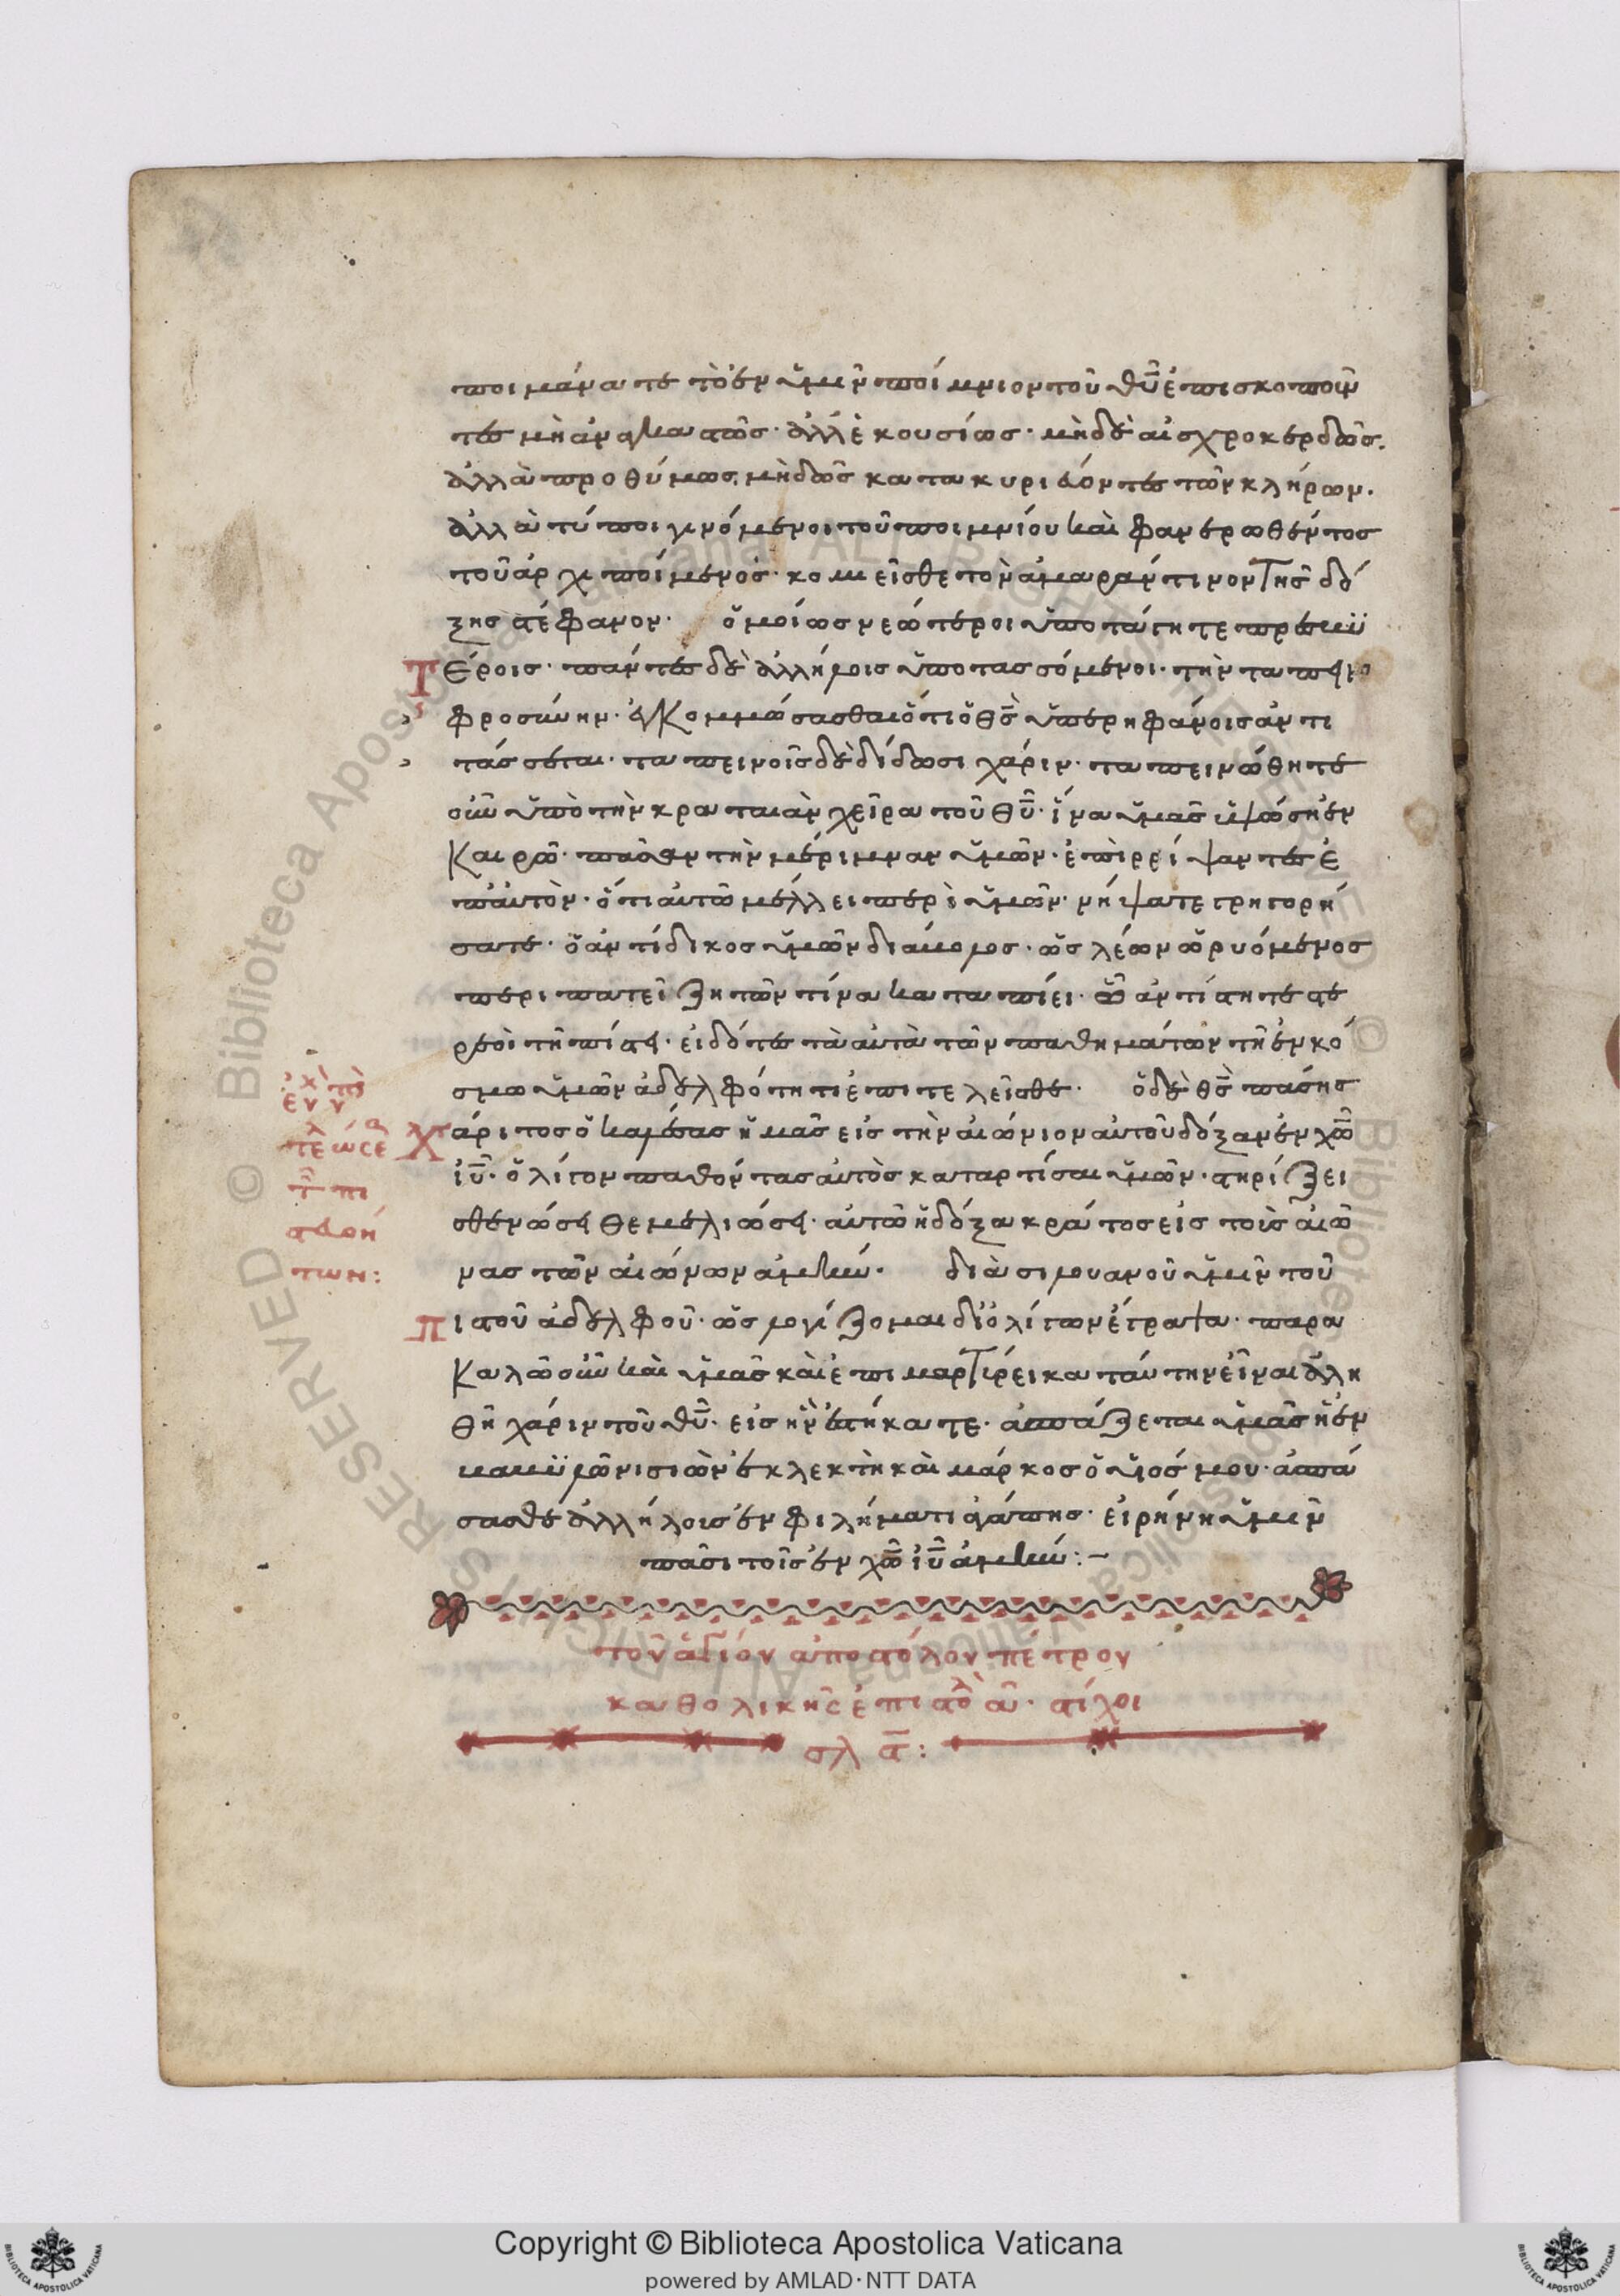 ποιμάνατε τὸ ἐν ὑμῖν ποίμνιον τοῦ θῦ ἐπισκοποῦν
τες μὴ ἀναγκαστῶς· ἀλλ ἑκουσίως· μὴ δὲ αἰσχροκερδῶς.
ἀλλὰ προθύμως· μὴδ ὡς κατακυριεύοντες τῶν κλήρων.
ἀλλὰ τύποι γινόμενοι τοῦ ποιμνίου καὶ φανερωθέντος
τοῦ ἀρχιποίμενος· κομιεῖσθε τον ἀμαράντινον τῆς δό
ξης στέφανον· ὁμοίως νεώτεροι ὑποτάγητε πρεσβυ
Τέροις· πάντες δὲ ἀλλήλοις ὑποτασσόμενοι· τὴν ταπεινο
φροσύνην· ἐγκομβώσασθαι ὅτι ὁ θς ὑπερηφάνοις ἀντι
τάσσεται· ταπεινοῖς δὲ δίδωσι χάριν· ταπεινώθητε
οὖν ὑπὸ τὴν κραταιὰν χεῖρα τοῦ θῦ· ἵνα ὑμᾶς ὑψώση ἐν
καιρῶ· πᾶσαν τὴν μέριμναν ὑμῶν· ἐπιρρείψαντες ἐ
π αὐτὸν· ὅτι αὐτῶ μέλλει περὶ ὑμῶν· νήψατε γρηγορή
σατε· ὁ ἀντίδικος ὑμῶν διάβολος· ὡς λέων ὠρυόμενος
περιπατεῖ ζητῶν τίνα καταπίει· ᾧ ἀντίστητε στε
ρεοὶ τῆ πίστει· εἰδότες τὰ αὐτὰ τῶν παθημάτων τῆ ἐν κό
σμω ὑμῶν ἀδελφότητι ἐπιτελεῖσθε· ὁ δὲ θς πάσης
Χάριτος ὁ καλέσας ἡμᾶς εἰς τὴν αἰώνιον αὐτοῦ δόξαν ἐν χῶ
ἰῦ· ὀλίγον παθόντας αὐτὸς καταρτίσαι ὑμῶν· στηρίζει
σθενώσει θεμελιώσει· αὐτῶ ἡ δόξα κράτος εἰς τοὺς αἰῶ
νας τῶν αἰώνων ἀμήν· διὰ σιλουανοῦ ὑμῖν τοῦ
πιστοῦ ἀδελφοῦ· ὡς λογίζομαι δι ὀλίγων ἔγραψα· παρα
καλῶ οὖν καὶ ὑμᾶς καὶ ἐπιμαρτυρεῖ κα ταύτην εἶναι ἀλη
θῆ χάριν τοῦ θῦ· εἰς ἣν ἑστήκατε· ἀσπάζεται ὑμᾶς ἡ ἐν
βαβυλῶνι συὼν ἐκλεκτὴ καὶ μάρκος ὁ υἱός μου· ἀσπά
σασθέ ἀλλήλοις ἐν φιλήματι ἀγάπης· εἰρήνη ὑμῖν
πᾶσι τοῖς ἐν χῶ ἰῦ ἀμήν:–
τοῦ ἁγίου ἀποστόλου πέτρου
καθολικῆς ἐπιστολ α· στίχοι
σλ α: